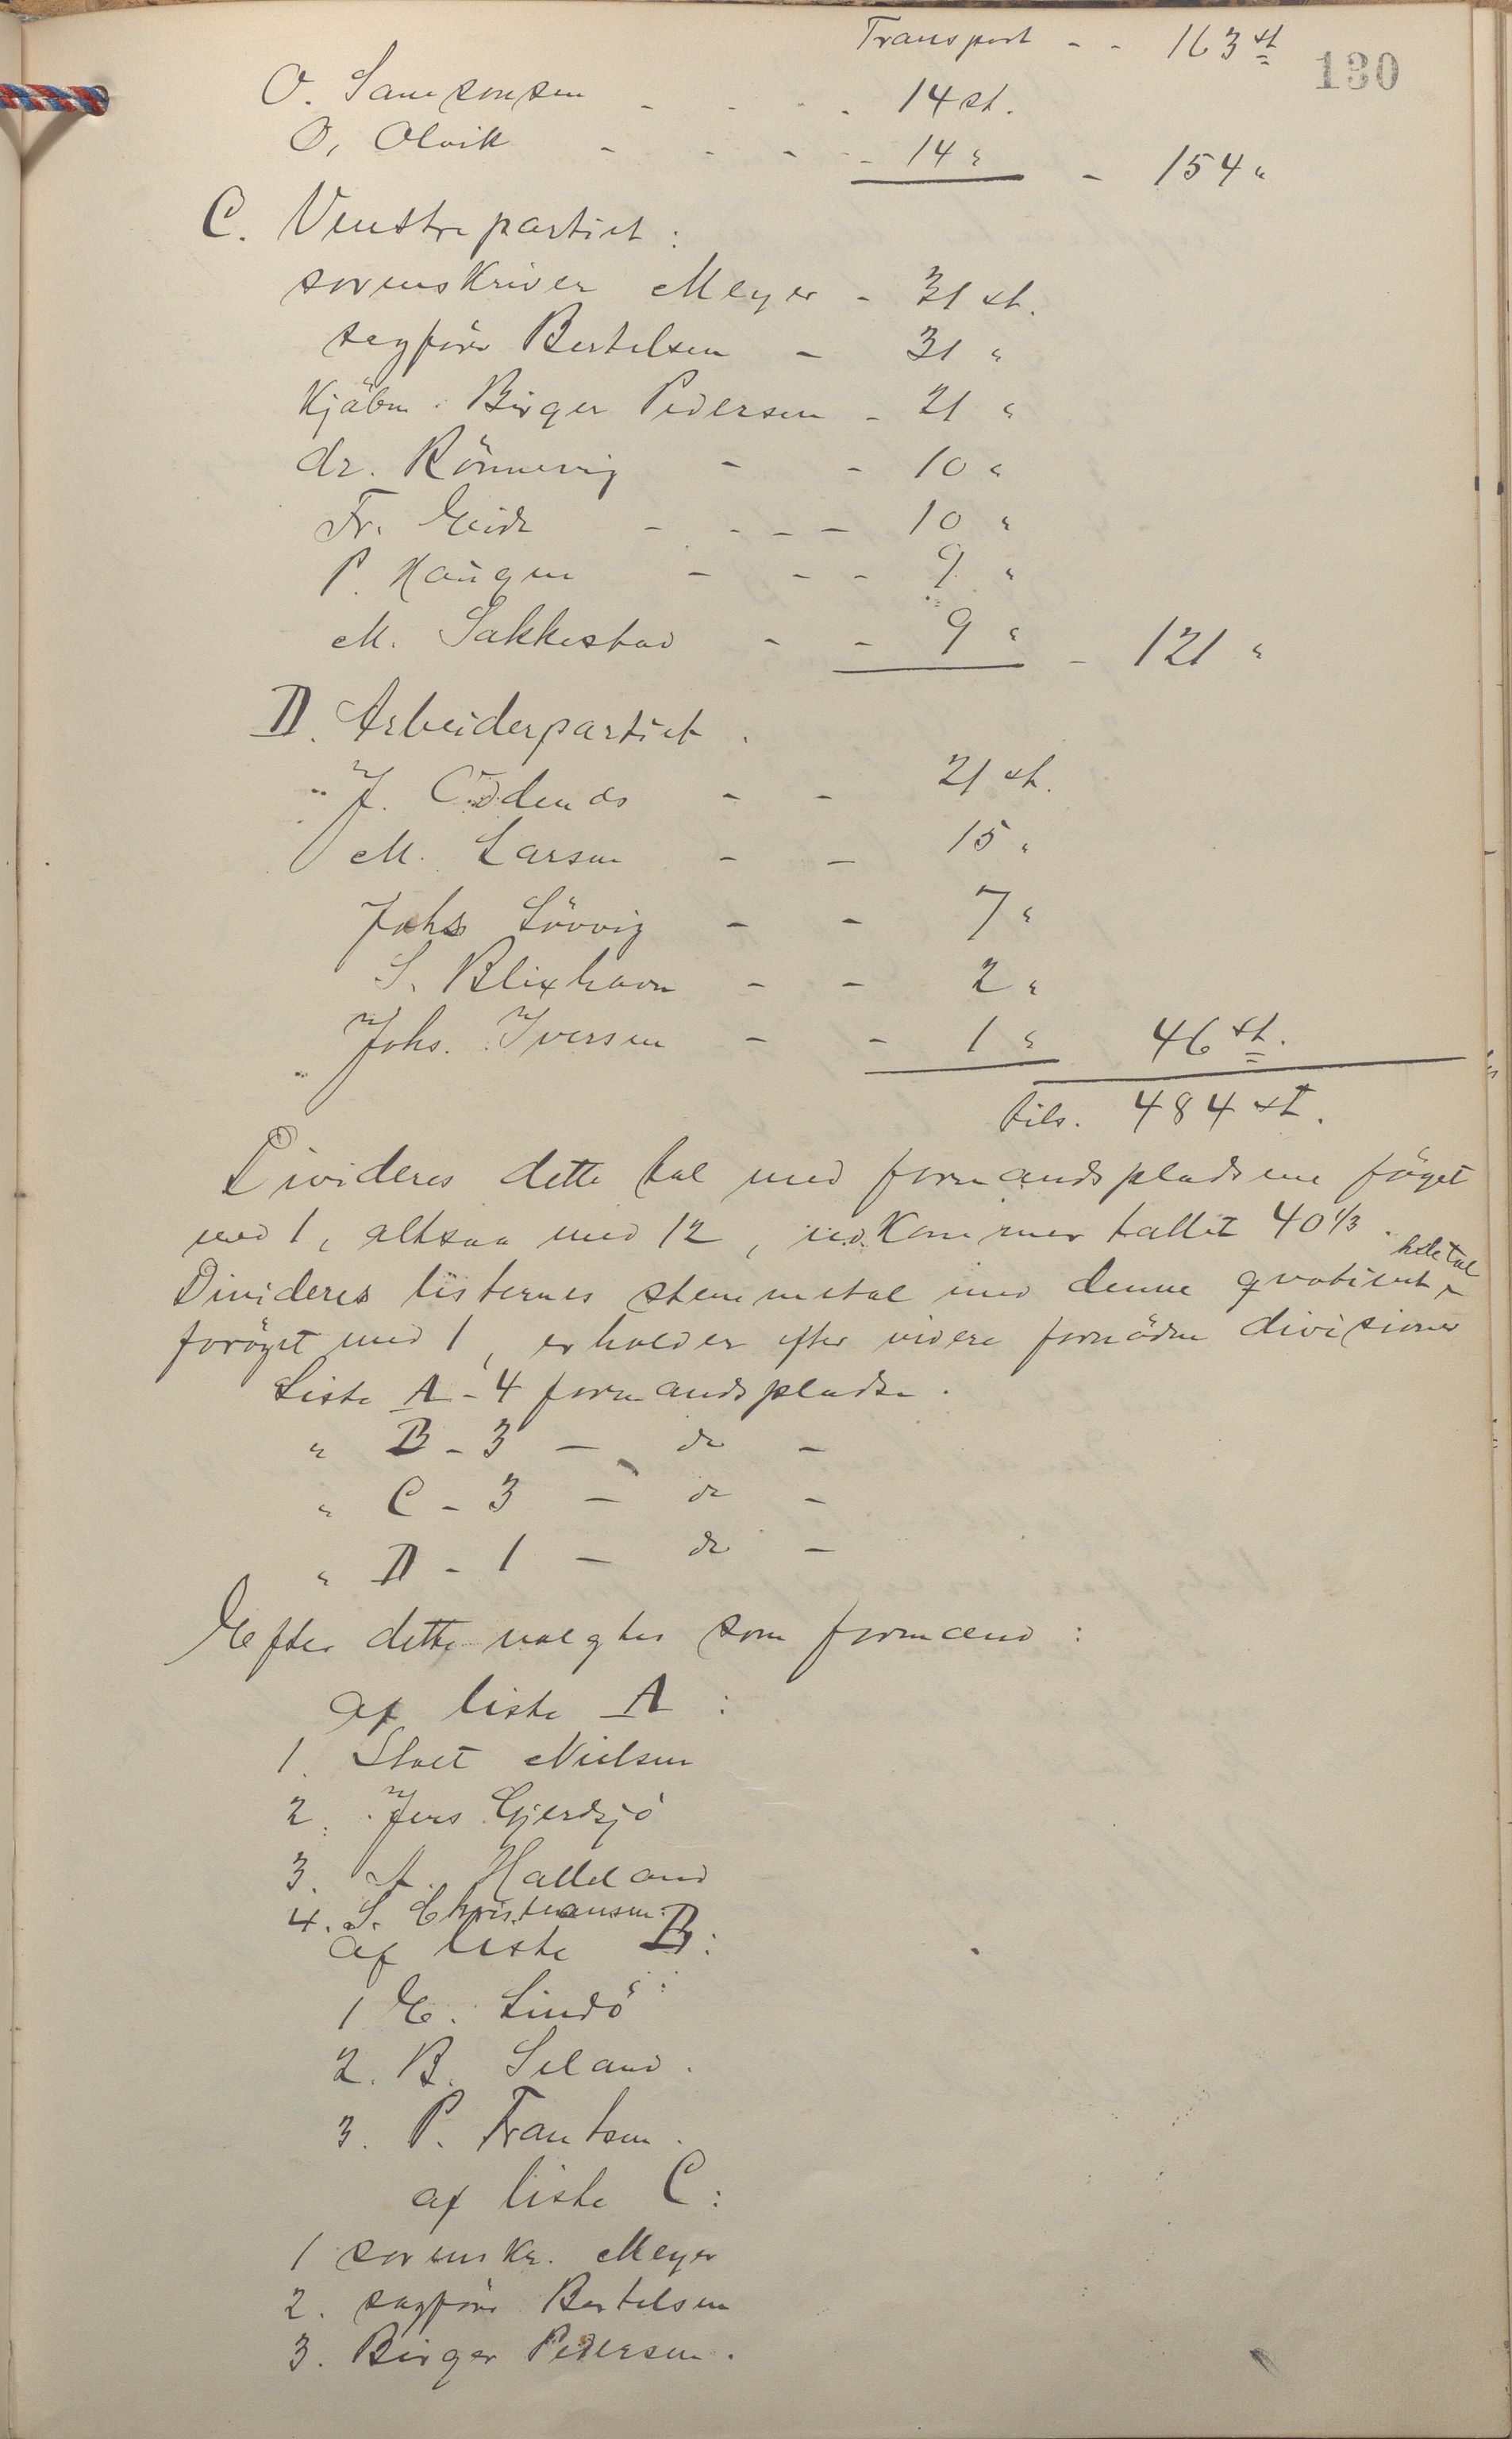 Transport - - 163 st
130
O. Samsonsen - - - 14 st.
O. Olvik - - - - 14 " - 154 "
C. Venstrepartiet:
sorenskriver Meyer - 31 st.
sagförer Bertelsen - 31 "
Kjöbm. Birger Pedersen - 21 "
dr. Rönnevig - - 10 "
Fr. Eide - - - - 10 "
P. Haugen - - - 9 "
M. Sakkestad - - 9 " - 121 "
D. Arbeiderpartiet.
J. Ödenæs - - 21 st.
M. Larsen - - 15 "
Johs Lövvig - - 7 "
S. Blixhavn - - 2 "
Johs. Iversen - - 1 " 46 st.
tils. 484 st.
Divideres dette tal med formandspladsene föget
med 1, altsaa med 12, udkommer tallet 40 1/3.
Divideres listernes stemmetal med denne qvotient hele tal
foröget med 1, erholder efter videre fornödne divisioner
Liste A - 4 formandspladse.
" B - 3 - do -
" C - 3 - do -
" D - 1 - do -
Efter dette valgtes som formænd:
af liste A:
1. Stoct Nielsen
2. Jens Gjerdsjö
3. A. Halleland
4. S. Christiansen.
af liste B:
1 E. Lindö
2. B. Seland.
3. P. Frantsen.
af liste C:
1 sorenskr. Meyer
2. sagförer Bertelsen
3. Birger Pedersen.